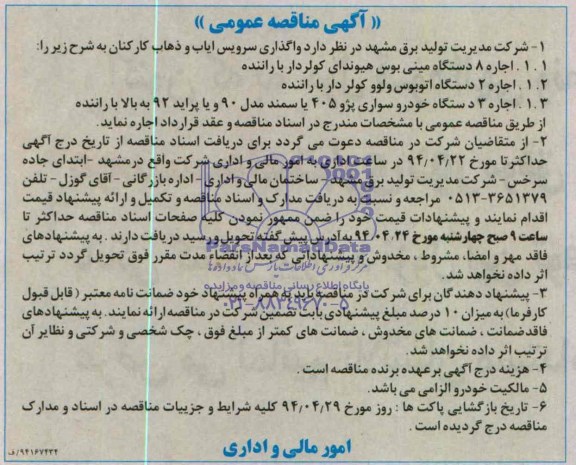 « آگهی مناقصه عمومی »
۱- شرکت مدیریت تولید برق مشهد در نظر دارد واگذاری سرویس ایاب و ذهاب کارکنان به شرح زیر را:
۱ . ۱ . اجاره ۸ دستگاه مینی بوس هیوندای کولردار با راننده
۱ . ۲ . اجاره ۲ دستگاه اتوبوس ولوو کولر دار با راننده
۱ . ۳ . اجاره ۳ د ستگاه خودرو سواری پژو ۴۰۵ یا سمند مدل ۹۰ و یا پراید ۹۲ به بالا با راننده
از طریق مناقصه عمومی با مشخصات مندرج در اسناد مناقصه و عقد قرارداد اجاره نماید.
۲- از متقاضیان شرکت در مناقصه دعوت می گردد برای دریافت اسناد مناقصه از تاریخ درج آگهی
حداکثر تا مورخ ۹۴/۰۴/۲۲ در ساعت اداری به امور مالی و اداری شرکت واقع در مشهد - ابتدای جاده
سرخس - شرکت مدیریت تولید برق مشهد - ساختمان مالی و اداری - اداره بازرگانی - آقای گوزل - تلفن
۰۵۱۳-۳۶۵۱۳۷۹ مراجعه و نسبت به دریافت مدارک و اسناد مناقصه و تکمیل و ارائه پیشنهاد قیمت
اقدام نمایند و پیشنهادات قیمت خود را ضمن ممهور نمودن کلیه صفحات اسناد مناقصه حداکثر تا
ساعت ۹ صبح چهارشنبه مورخ ۹۴،۰۴،۲۴ به آدرس پیش گفته تحویل و رسید دریافت دارند . به پیشنهادهای
فاقد مهر و امضا، مشروط ، مخدوش و پیشنهاداتی که بعد از انقضاء مدت مقرر فوق تحویل گردد ترتیب
اثر داده نخواهد شد.
۳- پیشنهاد دهندگان برای شرکت در مناقصه باید به همراه پیشنهاد خود ضمانت نامه معتبر ( قابل قبول
کارفرما) به میزان ۱۰ درصد مبلغ پیشنهادی بابت تضمین شرکت در مناقصه ارائه نمایند. به پیشنهادهای
فاقد ضمانت ، ضمانت های مخدوش ، ضمانت های کمتر از مبلغ فوق ، چک شخصی و شرکتی و نظایر آن
ترتیب اثر داده نخواهد شد.
۴- هزینه درج آگهی بر عهده برنده مناقصه است .
۵- مالکیت خودرو الزامی می باشد.
۶- تاریخ بازگشایی پاکت ها : روز مورخ ۹۴/۰۴/۲۹ کلیه شرایط و جزییات مناقصه در اسناد و مدارک
مناقصه درج گردیده است .
امور مالی و اداری
۹۴۱۶۷۴۳۴/ف
ParsNamadData
پایگاه اطلاع رسانی مناقصه و مزایده
۰۲۱-۸۸۳۴۹۶۷۰-۵